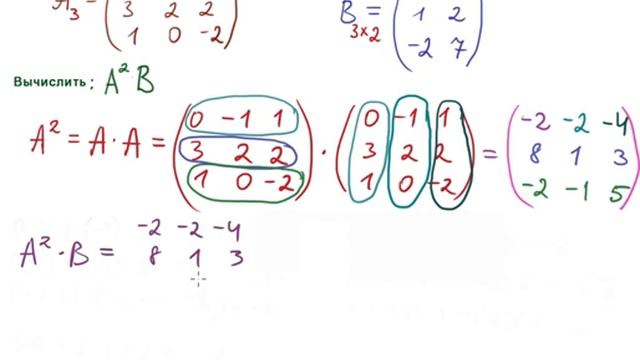 A₃ = ( 3 2 2
1 0 -2 )
B = ( 1 2
3×2
-2 7 )
Вычислить : A² B
A² = A · A = ( 0 -1 1 3 2 2 1 0 -2 ) · ( 0 -1 1 3 2 2 1 0 -2 ) = ( -2 -2 -4 8 1 3 -2 -1 5 )
A² · B = -2 -2 -4
8 1 3